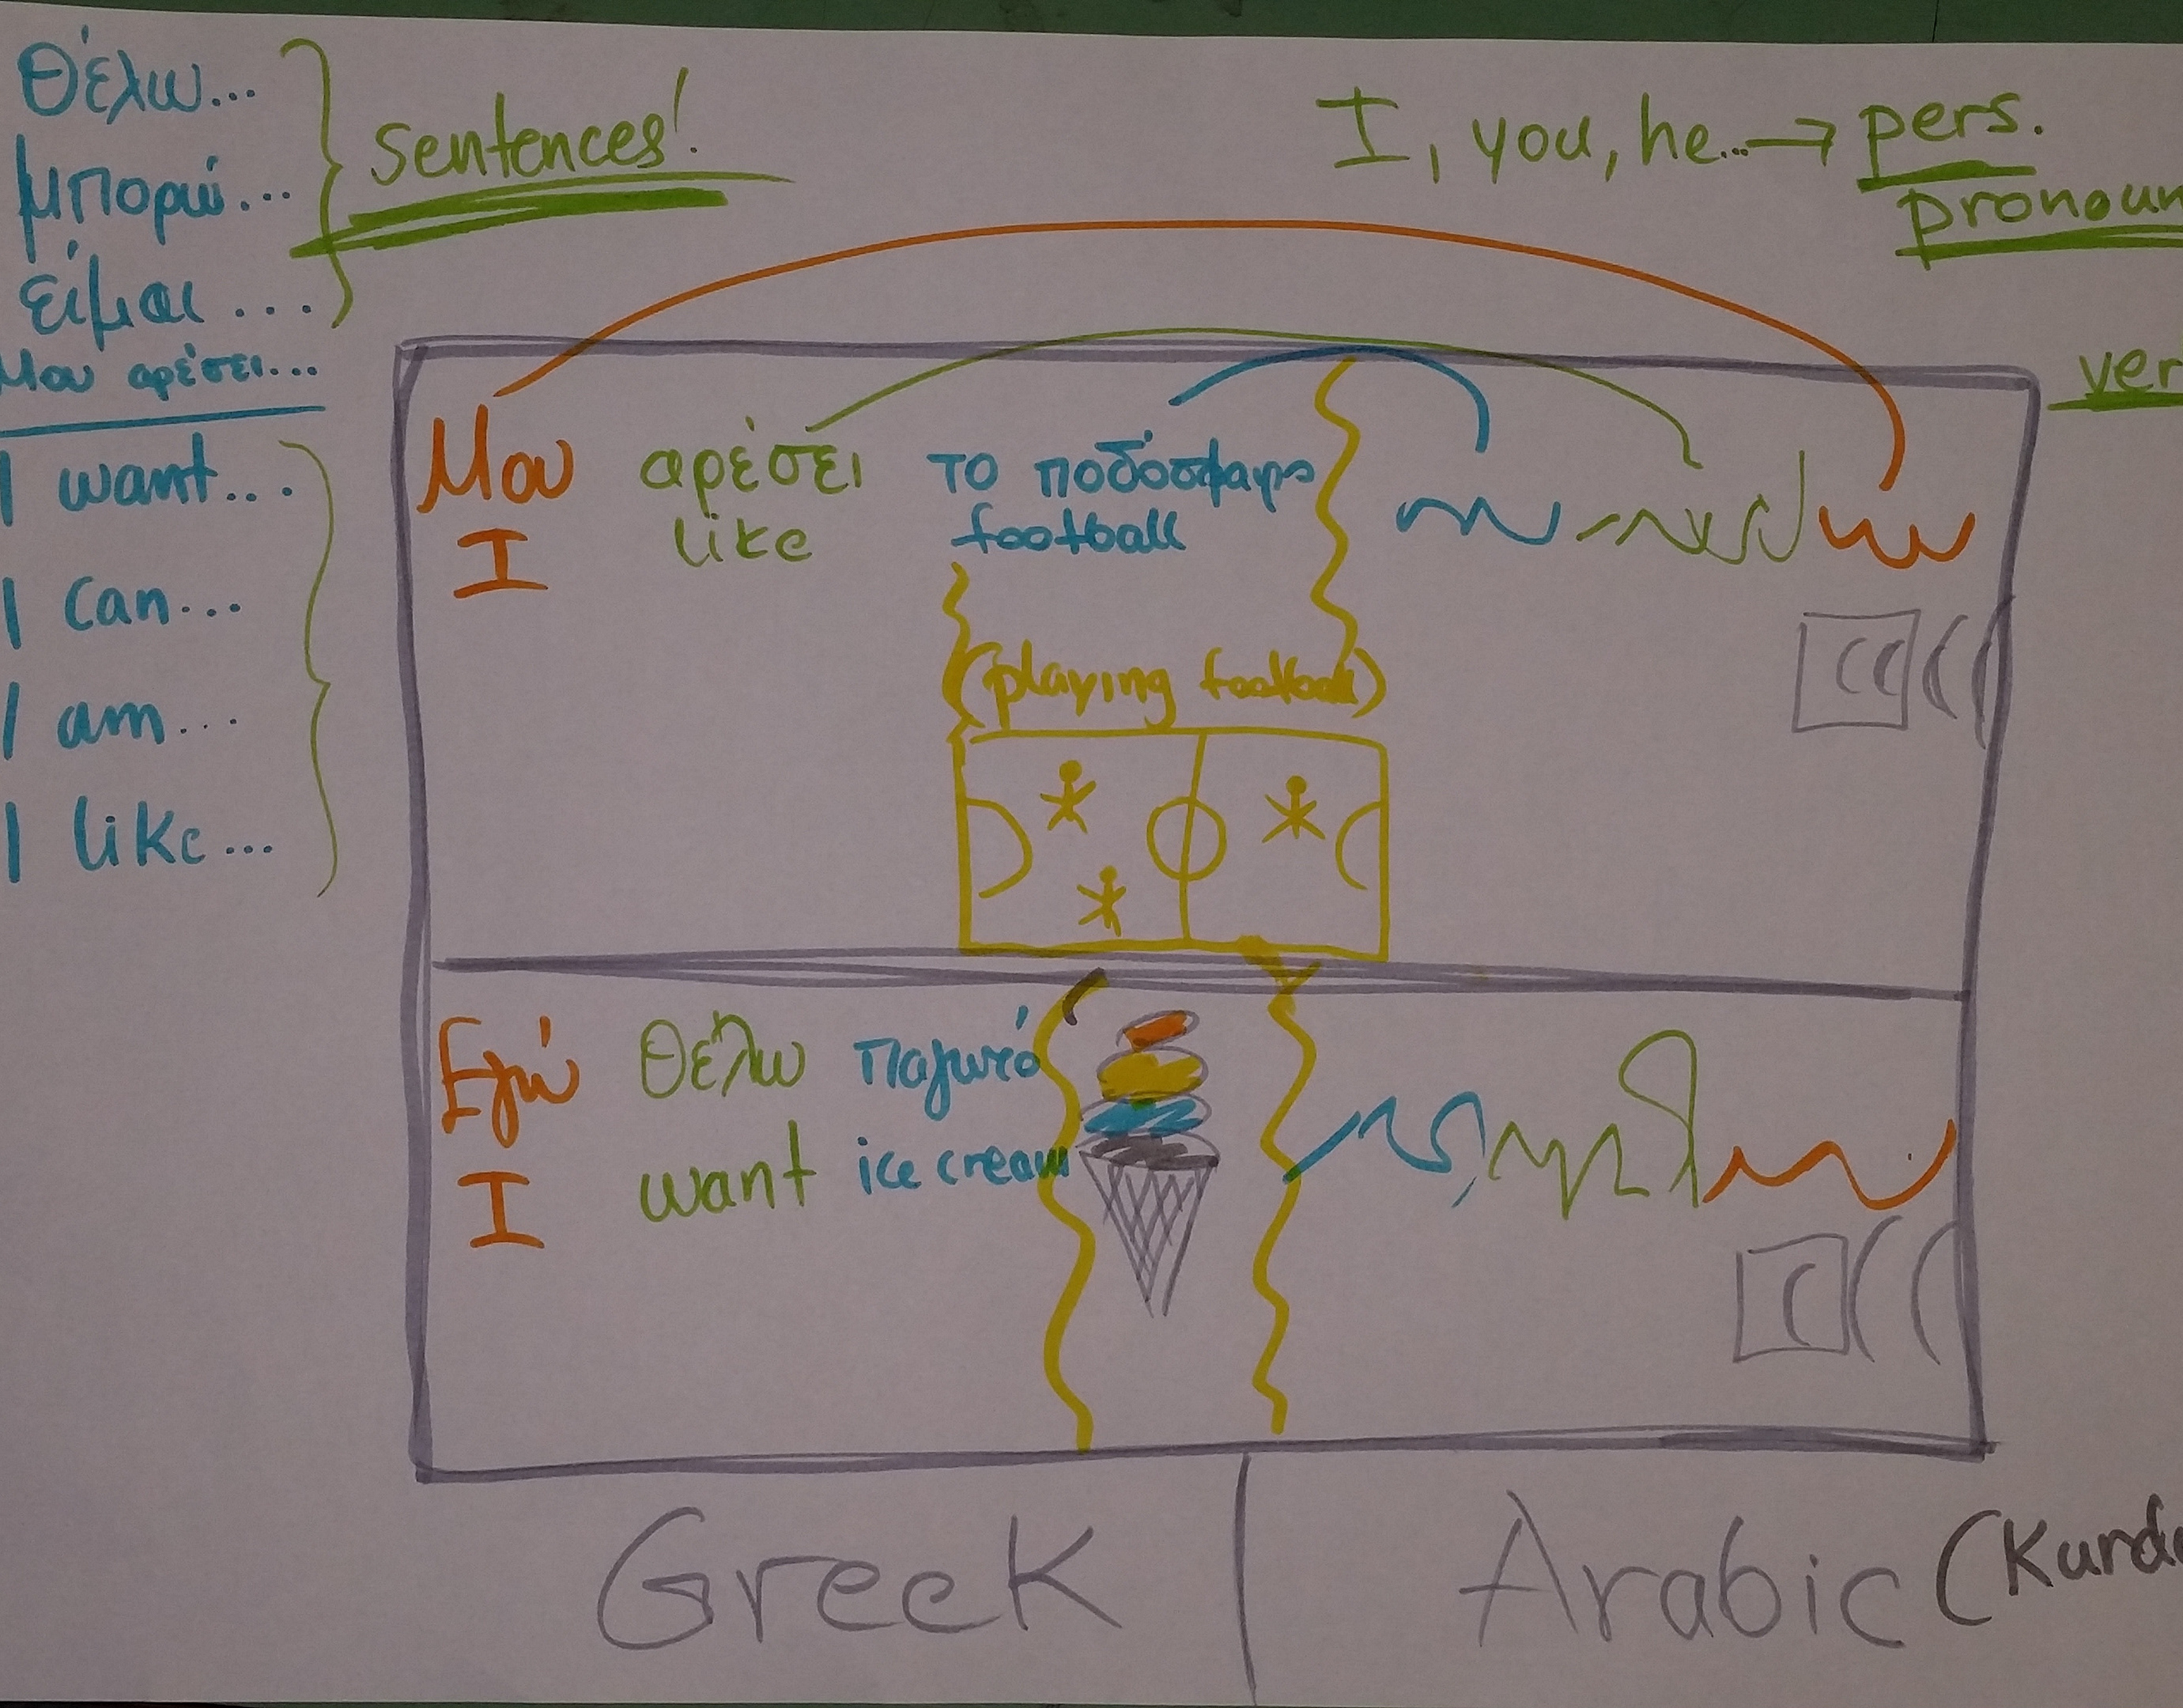 Θέλω...
μπορώ...
είμαι ...
Μου αρέσει...
sentences!
I, you, he... → pers.
pronoun
ver
I want...
I can...
I am...
I like...
Μου αρέσει το ποδόσφαιρο
I like football
(playing football)
Εγώ θέλω παγωτό
I want ice cream
Greek | Arabic (Kurdi